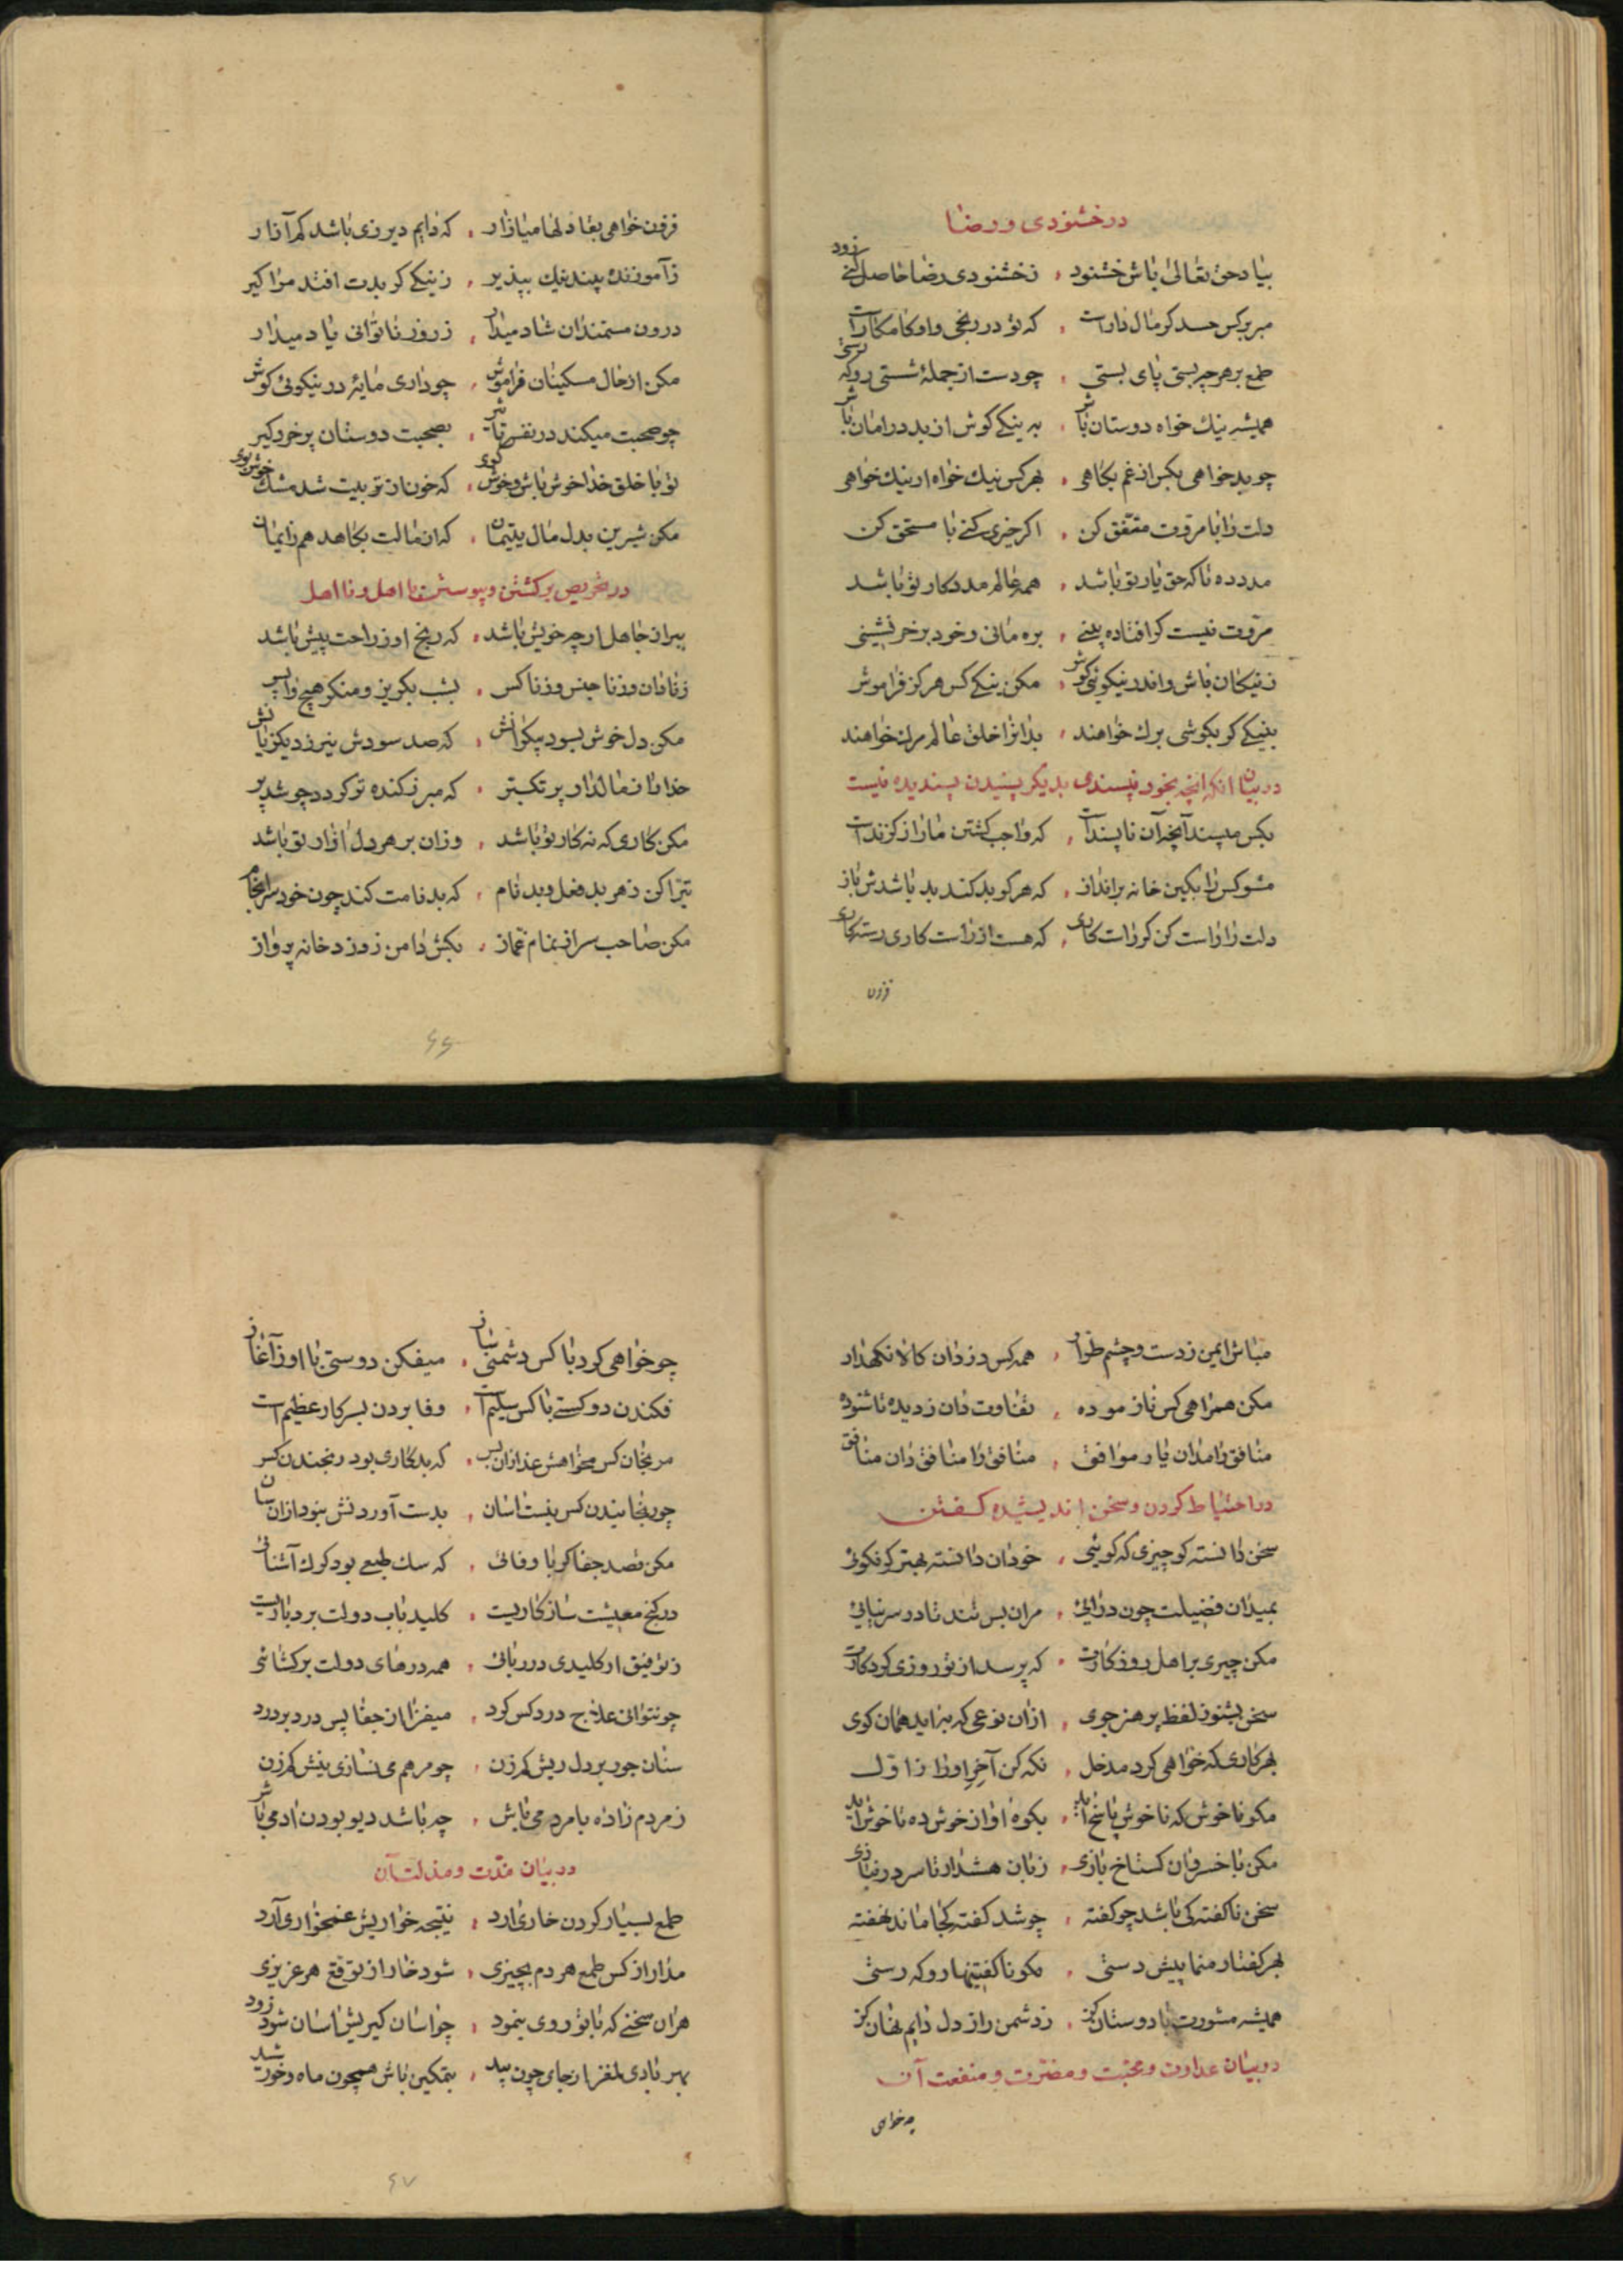 در خشنودی و رضا
بیاد حق تعالی باش خشنود ، زخشنودی رضا حاصل کنی زود
مبر بر کس حسد کر مال داراست ، که تو در رنجی و او کامکاراست
طمع بر هر چه بستی پای بستی ، چو دست از جمله شستی رو که رستی
همیشه نیك خواه دوستان باش ، به نیکی کوش از بد در امان باش
چو بد خواهی بکس از غم بکاهی ، بهر کس نیك خواه ار نیك خواهی
دلت را با مروت متفق کن ، اکر خیری کنی با مستحق کن
مدد ده تا که حق یار تو باشد ، همه عالم مددکار تو باشد
مروت نیست کر افتاده بینی ، بره مانی و خود بر خر نشینی
زنیکان باش و اندر نیکوئی کوش ، مکن نیکی کس هرکز فراموش
بنیکی کر بکوشی برك خواهند ، بدانرا خلق عالم مرك خواهند
در بیان انکه انچه بخود نپسندی بدیکر پسندیدن پسندیده نیست
بکس مپسند آنچه آن ناپسنداست ، که واجب کشتن مار از کزنداست
مشو کس را بکین خانه برانداز ، که هر کو بد کند بد باشدش باز
دلت را راست کن کر راست کاری ، که هست از راست کاری رستکاری
فزون
فزون خواهی بقا دلها میازار ، که دایم دیر زی باشد کم آزار
زآموزنده پند نیك بپذیر ، زنیکی کر بدت افتد مرا کیر
درون مستمندان شاد میدار ، زروز ناتوانی یاد میدار
مکن از حال مسکینان فراموش ، چو داری مایه در نیکوئی کوش
چو صحبت میکند در نفس تاثیر ، بصحبت دوستان پر خرد کیر
تو با خلق خدا خوش باش و خوش کوی ، که خون از تربیت شد مشك خوش بوی
مکن شیرین بدل مال یتیمان ، که ان مالت بکاهد هم زایمان
در تحریص برکشتن و پیوستن با اهل و نا اهل
ببر از جاهل ار چه خویش باشد ، که رنج او زراحت پیش باشد
زنادان وز ناجنس و زناکس ، بشب بکریز و منکر هیچ واپس
مکن دل خوش بسود بیکرانش ، که صد سودش نیرزد یکزیانش
خدا مالدار پر تکبر ، که مبرز کنده تر کردد چو شد پر
مکن کاری که نه کار تو باشد ، وزان بر هر دل ازار تو باشد
تبرا کن زهر بد فعل و بد نام ، که بدنامت کند چون خود سرانجام
مکن صاحب سر از نمام غماز ، بکش دامن زدزد خانه پرداز
۶۶
مباش ایمن زدست و چشم طرار ، همه کس دزد دان کالا نکهدار
مکن همراهی کس نازموده ، تفاوت دان زدیده تا شنوده
منافق را مدان یار موافق ، منافق را منافق دان منافق
در احتیاط کردن و سخن اندیشیده کفتن
سخن دانسته کو چیزی که کوئی ، خود ان دانسته بهتر کر نکوئی
بمیدان فضیلت چون درائی ، مران بس تند تا در سر نیائی
مکن چیزی بر اهل روزکارت ، که پرسد از تو روزی کردکارت
سخن بشنو زلفظ پر هنر جوی ، ازان نوعی که بنماید همان کوی
بهر کاری که خواهی کرد مدخل ، نکه کن آخر اورا زاول
مکو ناخوش که ناخوش پاسخ اید ، بکوه اواز خوش ده تا خوش اید
مکن با خسروان کستاخ بازی ، زبان هشدار تا سر در نبازی
سخن ناکفته کی باشد چو کفته ، چو شد کفته کجا ماند نهفته
بهر کفتار منما پیش دستی ، مکو ناکفتنیها رو که رستی
همیشه مشورت با دوستان کن ، زدشمن راز دل دایم نهان کن
در بیان عداوت و محبت و مضرت و منفعت آن
چه خواهی
چو خواهی کرد با کس دشمنی ساز ، میفکن دوستی با او زآغاز
فکندن دوستی با کس سلیم است ، وفا بردن بسر کار عظیم است
مرنجان کس مخواهش عذر ازان پس ، که بدکاری بود رنجیدن کس
چو رنجانیدن کس نیست اسان ، بدست آوردنش نبود ازان سان
مکن قصد جفا کر با وفائی ، که سك طبعی بود کرك آشنائی
در کنج معیشت سازکاریست ، کلید باب دولت بردباریست
زتوفیق ار کلیدی در ربائی ، همه درهای دولت برکشائی
چو نتوانی علاج درد کس کرد ، میفزا از جفا پس درد بر درد
سنان جور بر دل ریش کم زن ، چو مرهم می نسازی نیش کم زن
زمردم زاده با مردمی باش ، چه باشد دیو بودن ادمی باش
در بیان مذمت و مذلت آن
طمع بسیار کردن خاری ارد ، نتیجه خواریش غمخواری آرد
مدار از کس طمع هر دم بچیزی ، شود خار از توقع هر عزیزی
هر ان سختی که با تو روی بنمود ، چو اسان کیریش اسان شود زود
بهر بادی ملغز از جای چون بید ، بتمکین باش همچون ماه و خورشید
۶۷